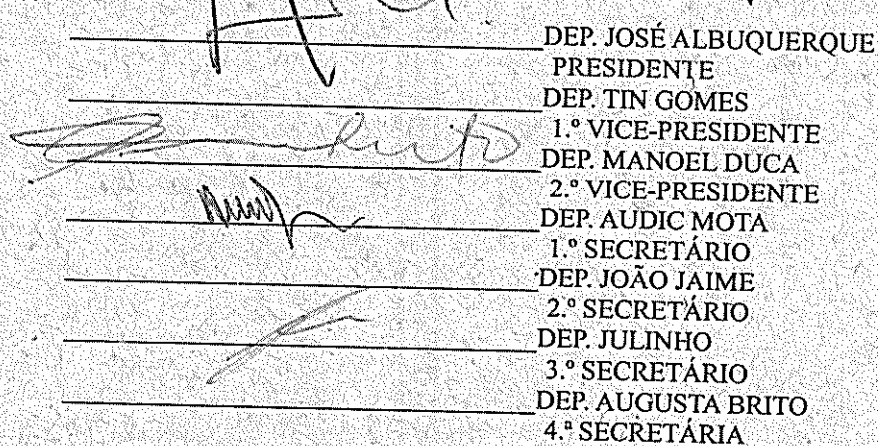 DEP. JOSÉ ALBUQUERQUE
PRESIDENTE
DEP. TIN GOMES
1.º VICE-PRESIDENTE
DEP. MANOEL DUCA
2.º VICE-PRESIDENTE
DEP. AUDIC MOTA
1.º SECRETÁRIO
DEP. JOÃO JAIME
2.º SECRETÁRIO
DEP. JULINHO
3.º SECRETÁRIO
DEP. AUGUSTA BRITO
4.ª SECRETÁRIA